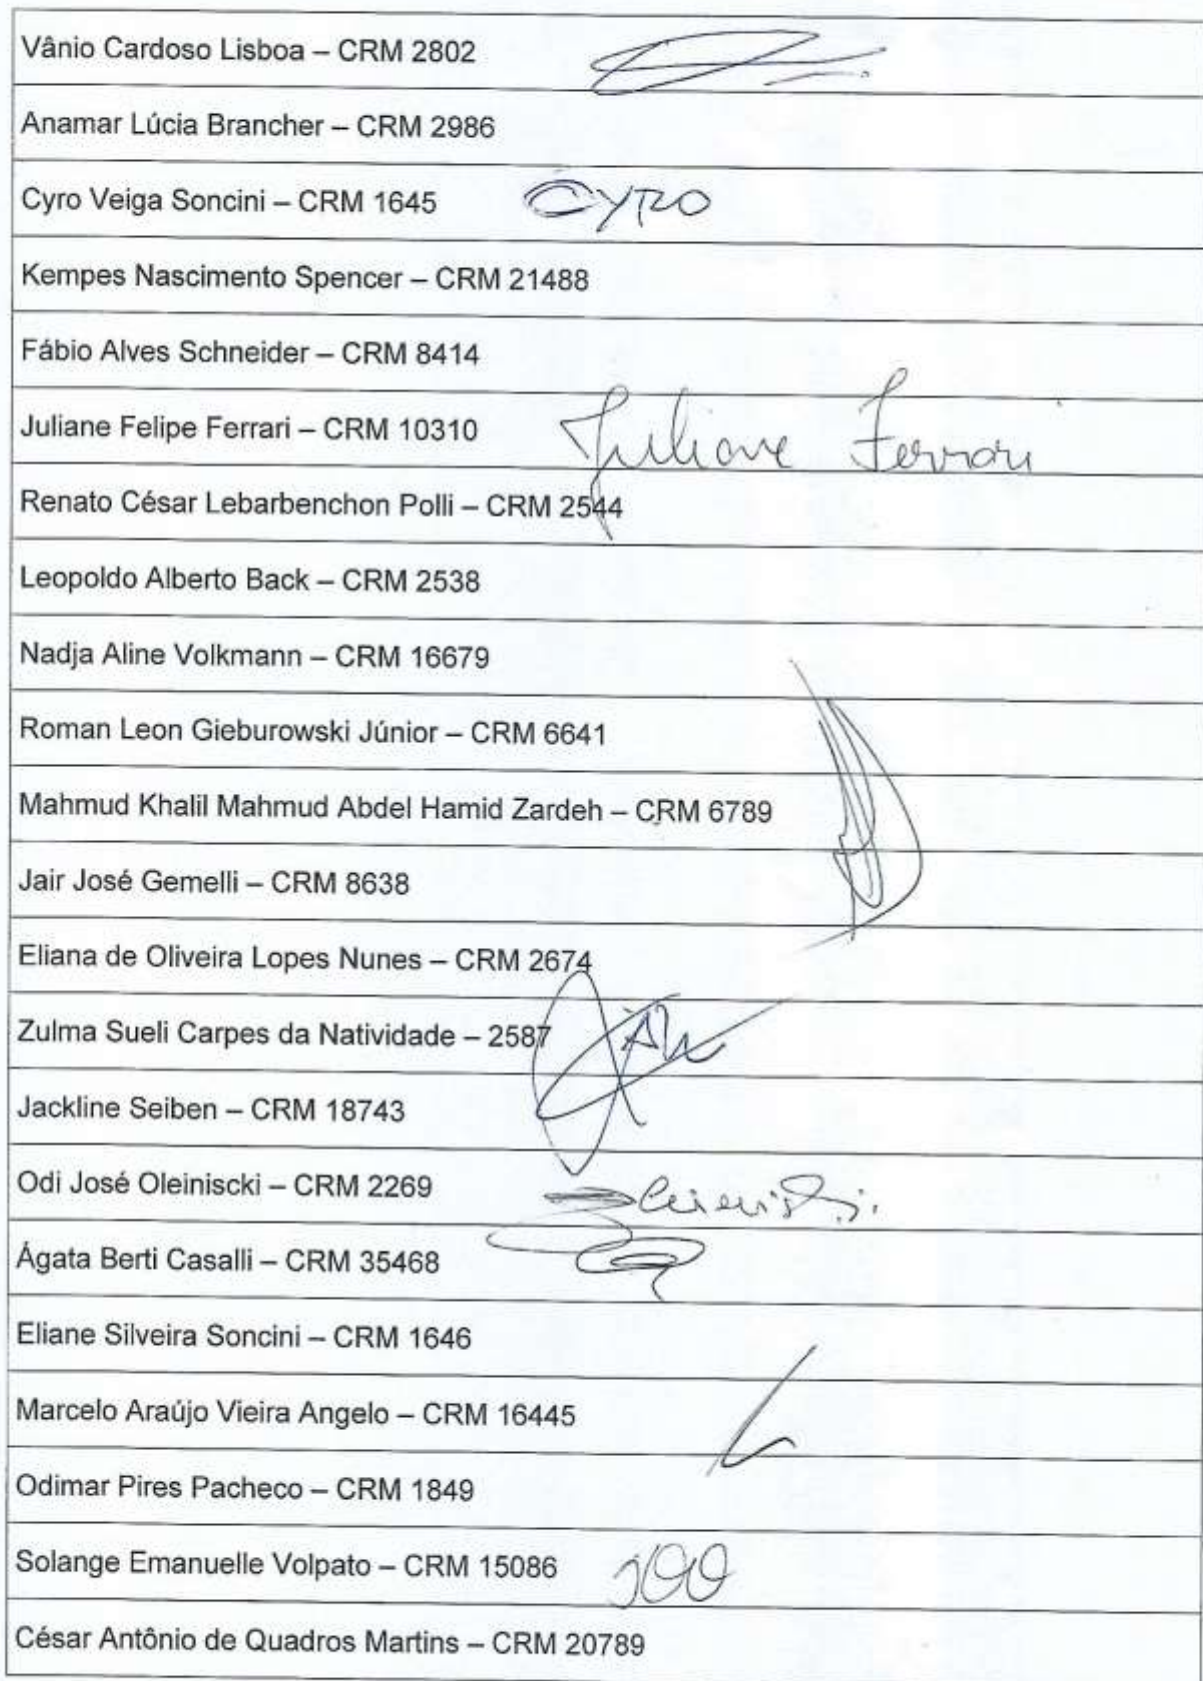 Vânio Cardoso Lisboa – CRM 2802
Anamar Lúcia Brancher – CRM 2986
Cyro Veiga Soncini – CRM 1645 CYRO
Kempes Nascimento Spencer – CRM 21488
Fábio Alves Schneider – CRM 8414
Juliane Felipe Ferrari – CRM 10310 Juliane Ferrari
Renato César Lebarbenchon Polli – CRM 2544
Leopoldo Alberto Back – CRM 2538
Nadja Aline Volkmann – CRM 16679
Roman Leon Gieburowski Júnior – CRM 6641
Mahmud Khalil Mahmud Abdel Hamid Zardeh – CRM 6789
Jair José Gemelli – CRM 8638
Eliana de Oliveira Lopes Nunes – CRM 2674
Zulma Sueli Carpes da Natividade – 2587
Jackline Seiben – CRM 18743
Odi José Oleiniscki – CRM 2269
Ágata Berti Casalli – CRM 35468
Eliane Silveira Soncini – CRM 1646
Marcelo Araújo Vieira Angelo – CRM 16445
Odimar Pires Pacheco – CRM 1849
Solange Emanuelle Volpato – CRM 15086
César Antônio de Quadros Martins – CRM 20789